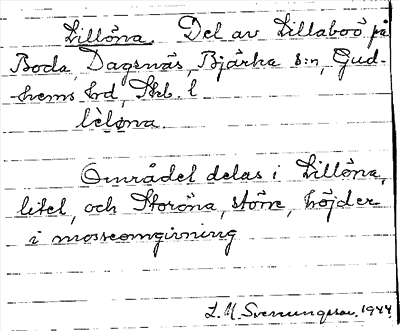 Lillöna. Del av Lillaboö på
Boda, Dagsnäs, Bjärka s:n, Gud-
hems hd, Skb. l
lèløna.
Området delas i Lillöna,
litet, och Storöna, större, höjder
i mosseomgivning
L. M. Svenungsson 1944.